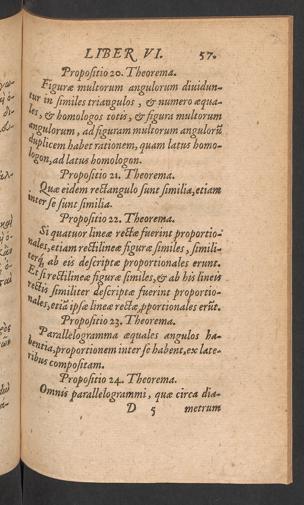 LIBER VI. 57.
Propositio 20. Theorema.
Figuræ multorum angulorum diuidun-
tur in similes triangulos, & numero æqua-
les, & homologos totis, & figura multorum
angulorum, ad figuram multorum angulorũ
duplicem habet rationem, quam latus homo-
logon, ad latus homologon.
Propositio 21. Theorema.
Quæ eidem rectangulo sunt similia, etiam
inter se sunt similia.
Propositio 22. Theorema.
Si quatuor lineæ rectæ fuerint proportio-
nales, etiam rectilineæ figuræ similes, simili-
terq́; ab eis descriptæ proportionales erunt.
Et si rectilineæ figuræ similes, & ab his lineis
rectis similiter descriptæ fuerint proportio-
nales, etiã ipsæ lineæ rectæ, pportionales erũt.
Propositio 23. Theorema.
Parallelogramma æquales angulos ha-
bentia, proportionem inter se habent, ex late-
ribus compositam.
Propositio 24. Theorema.
Omnis parallelogrammi, quæ circa dia-
D 5 metrum